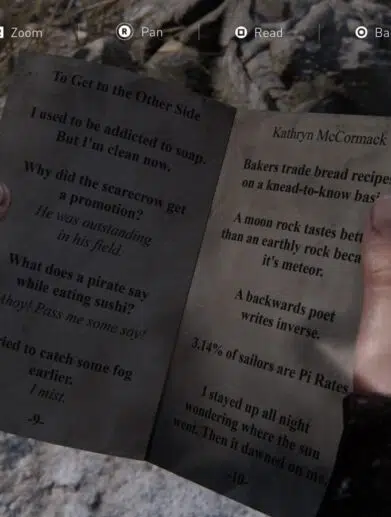 Zoom
R Pan
Read
Ba
To Get to the Other Side
I used to be addicted to soap.
But I'm clean now.
Why did the scarecrow get
a promotion?
He was outstanding
in his field.
What does a pirate say
while eating sushi?
Ahoy! Pass me some soy!
ried to catch some fog
earlier.
I mist.
-9-
Kathryn McCormack
Bakers trade bread recipes
on a knead-to-know basi
A moon rock tastes bett
than an earthly rock beca
it's meteor.
A backwards poet
writes inverse.
3.14% of sailors are Pi Rates
I stayed up all night
wondering where the sun
went. Then it dawned on me.
-10-